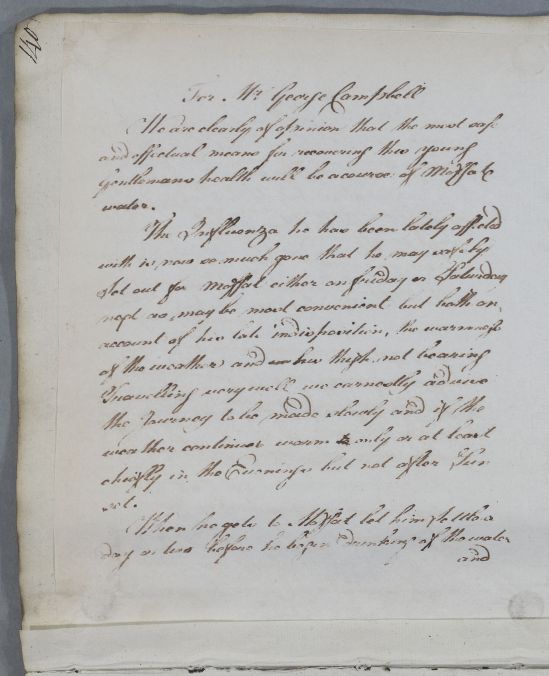 140
For Mr. George Campbell
We are clearly of opinion that the most safe
and effectual means for recovering this young
Gentlemans health will be a course of Moffat
water.
The Influenza he has been lately affected
with is now so much gone that he may safely
set out for Moffat either on friday or Saturday
next as may be most convenient but both on
account of his late indisposition, the warmness
of the weather and his thigh not bearing
Travelling very well we earnestly advise
the Journey to be made slowly and if the
weather continues warm only or at least
chiefly in the Evenings but not after Sun
set.
When he gets to Moffat let him settle a
day or two before he begin drinking of the water
and